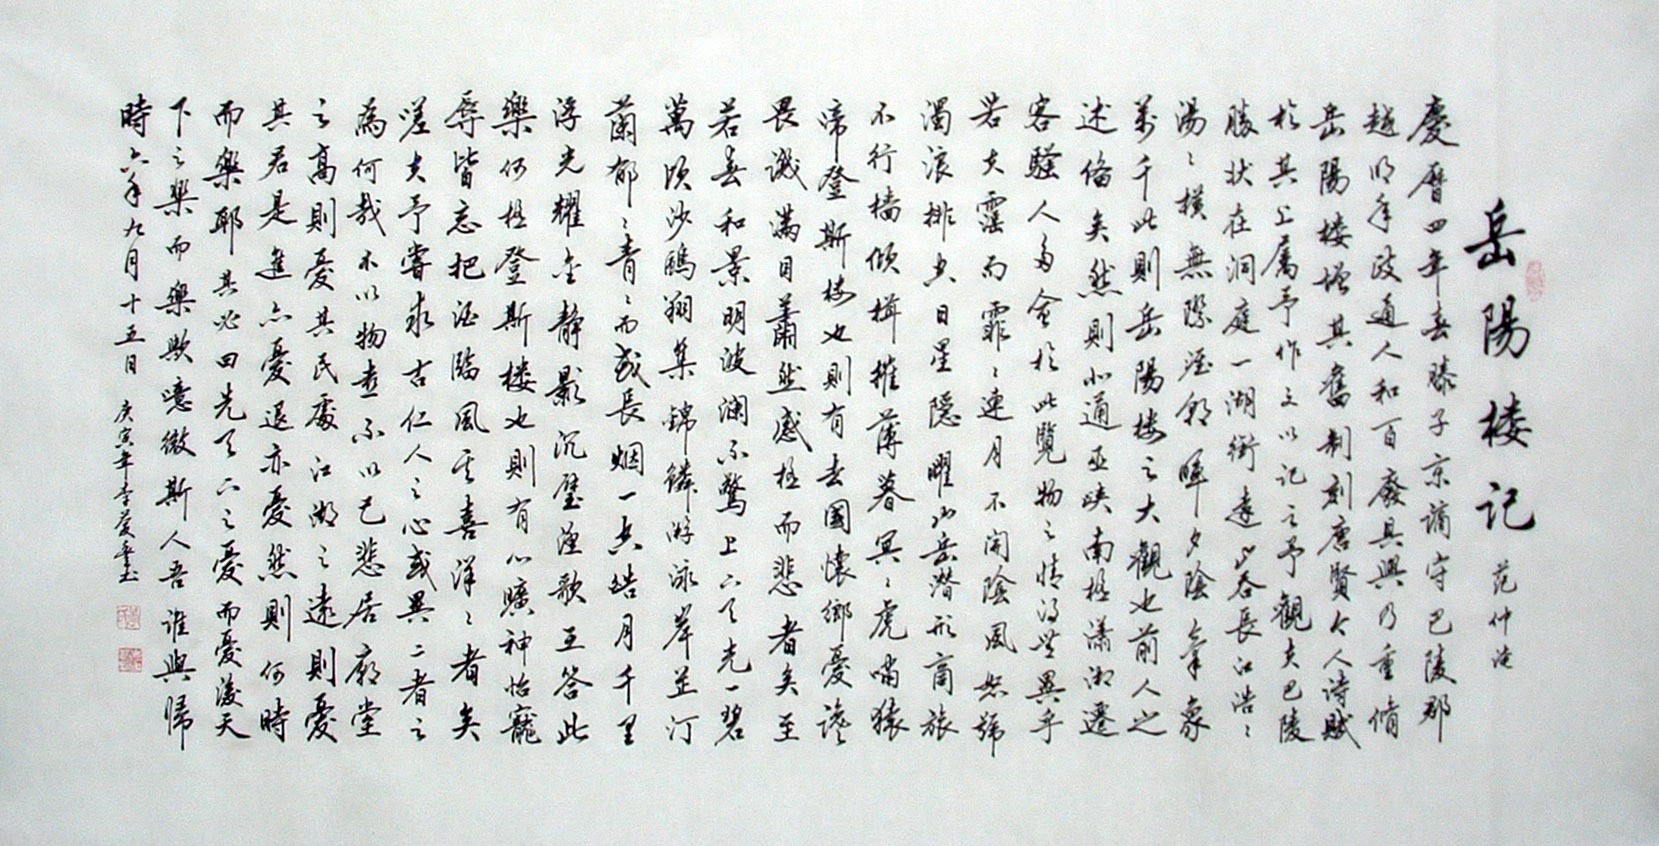 岳陽楼记
范仲淹
慶曆四年春滕子京謫守巴陵郡
越明年政通人和百廢具興乃重脩
岳陽楼增其舊制刻唐賢今人诗賦
於其上属予作文以记之予觀夫巴陵
勝状在洞庭一湖銜遠山吞長江浩々
湯々横無際涯朝暉夕陰氣象
萬千此則岳陽楼之大觀也前人之
述俻矣然則北通巫峡南極瀟湘遷
客騷人多會於此覽物之情得無異乎
若夫霪雨霏々連月不開陰風怒號
濁浪排空日星隐曜山岳潜形商旅
不行檣傾楫摧薄暮冥々虎嘯猿
啼登斯楼也則有去國懷鄉憂讒
畏譏滿目蕭然感極而悲者矣至
若春和景明波澜不驚上下天光一碧
萬頃沙鷗翔集錦鱗游泳岸芷汀
蘭郁々青々而或長烟一空皓月千里
浮光耀金静影沉璧漁歌互答此
樂何極登斯楼也則有心曠神怡寵
辱皆忘把酒臨風其喜洋々者矣
嗟夫予嘗求古仁人之心或異二者之
為何哉不以物喜不以己悲居廟堂
之高則憂其民處江湖之遠則憂
其君是進亦憂退亦憂然則何時
而樂耶其必曰先天下之憂而憂後天
下之樂而樂歟噫微斯人吾誰與歸
時六年九月十五日 庚寅年